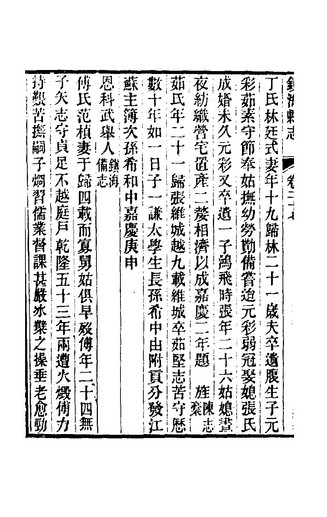 鎮海縣志 卷二十七
丁氏林廷式妻年十九歸林二十一歲夫卒遺腹生子元
彩茹素守節奉姑撫幼勞勩備嘗迨元彩弱冠娶媳張氏
成婚未久元彩又卒遺一子鴻飛時張年二十六姑媳晝
夜紡織營宅置產二嫠相濟以成嘉慶二年題 旌 陳志稾
茹氏年二十一歸張維城越九載維城卒茹堅志苦守歷
數十年如一日子一謙太學生長孫希中由附貢分發江
蘇主簿次孫希和中嘉慶庚申
恩科武舉人 鎮海備志
傅氏范楨妻于歸四載而寡舅姑俱早歿傅年二十四無
子矢志守貞足不越庭戶乾隆五十三年兩遭火燬傅力
持艱苦撫嗣子烱習儒業督課甚嚴氷蘗之操垂老愈勁